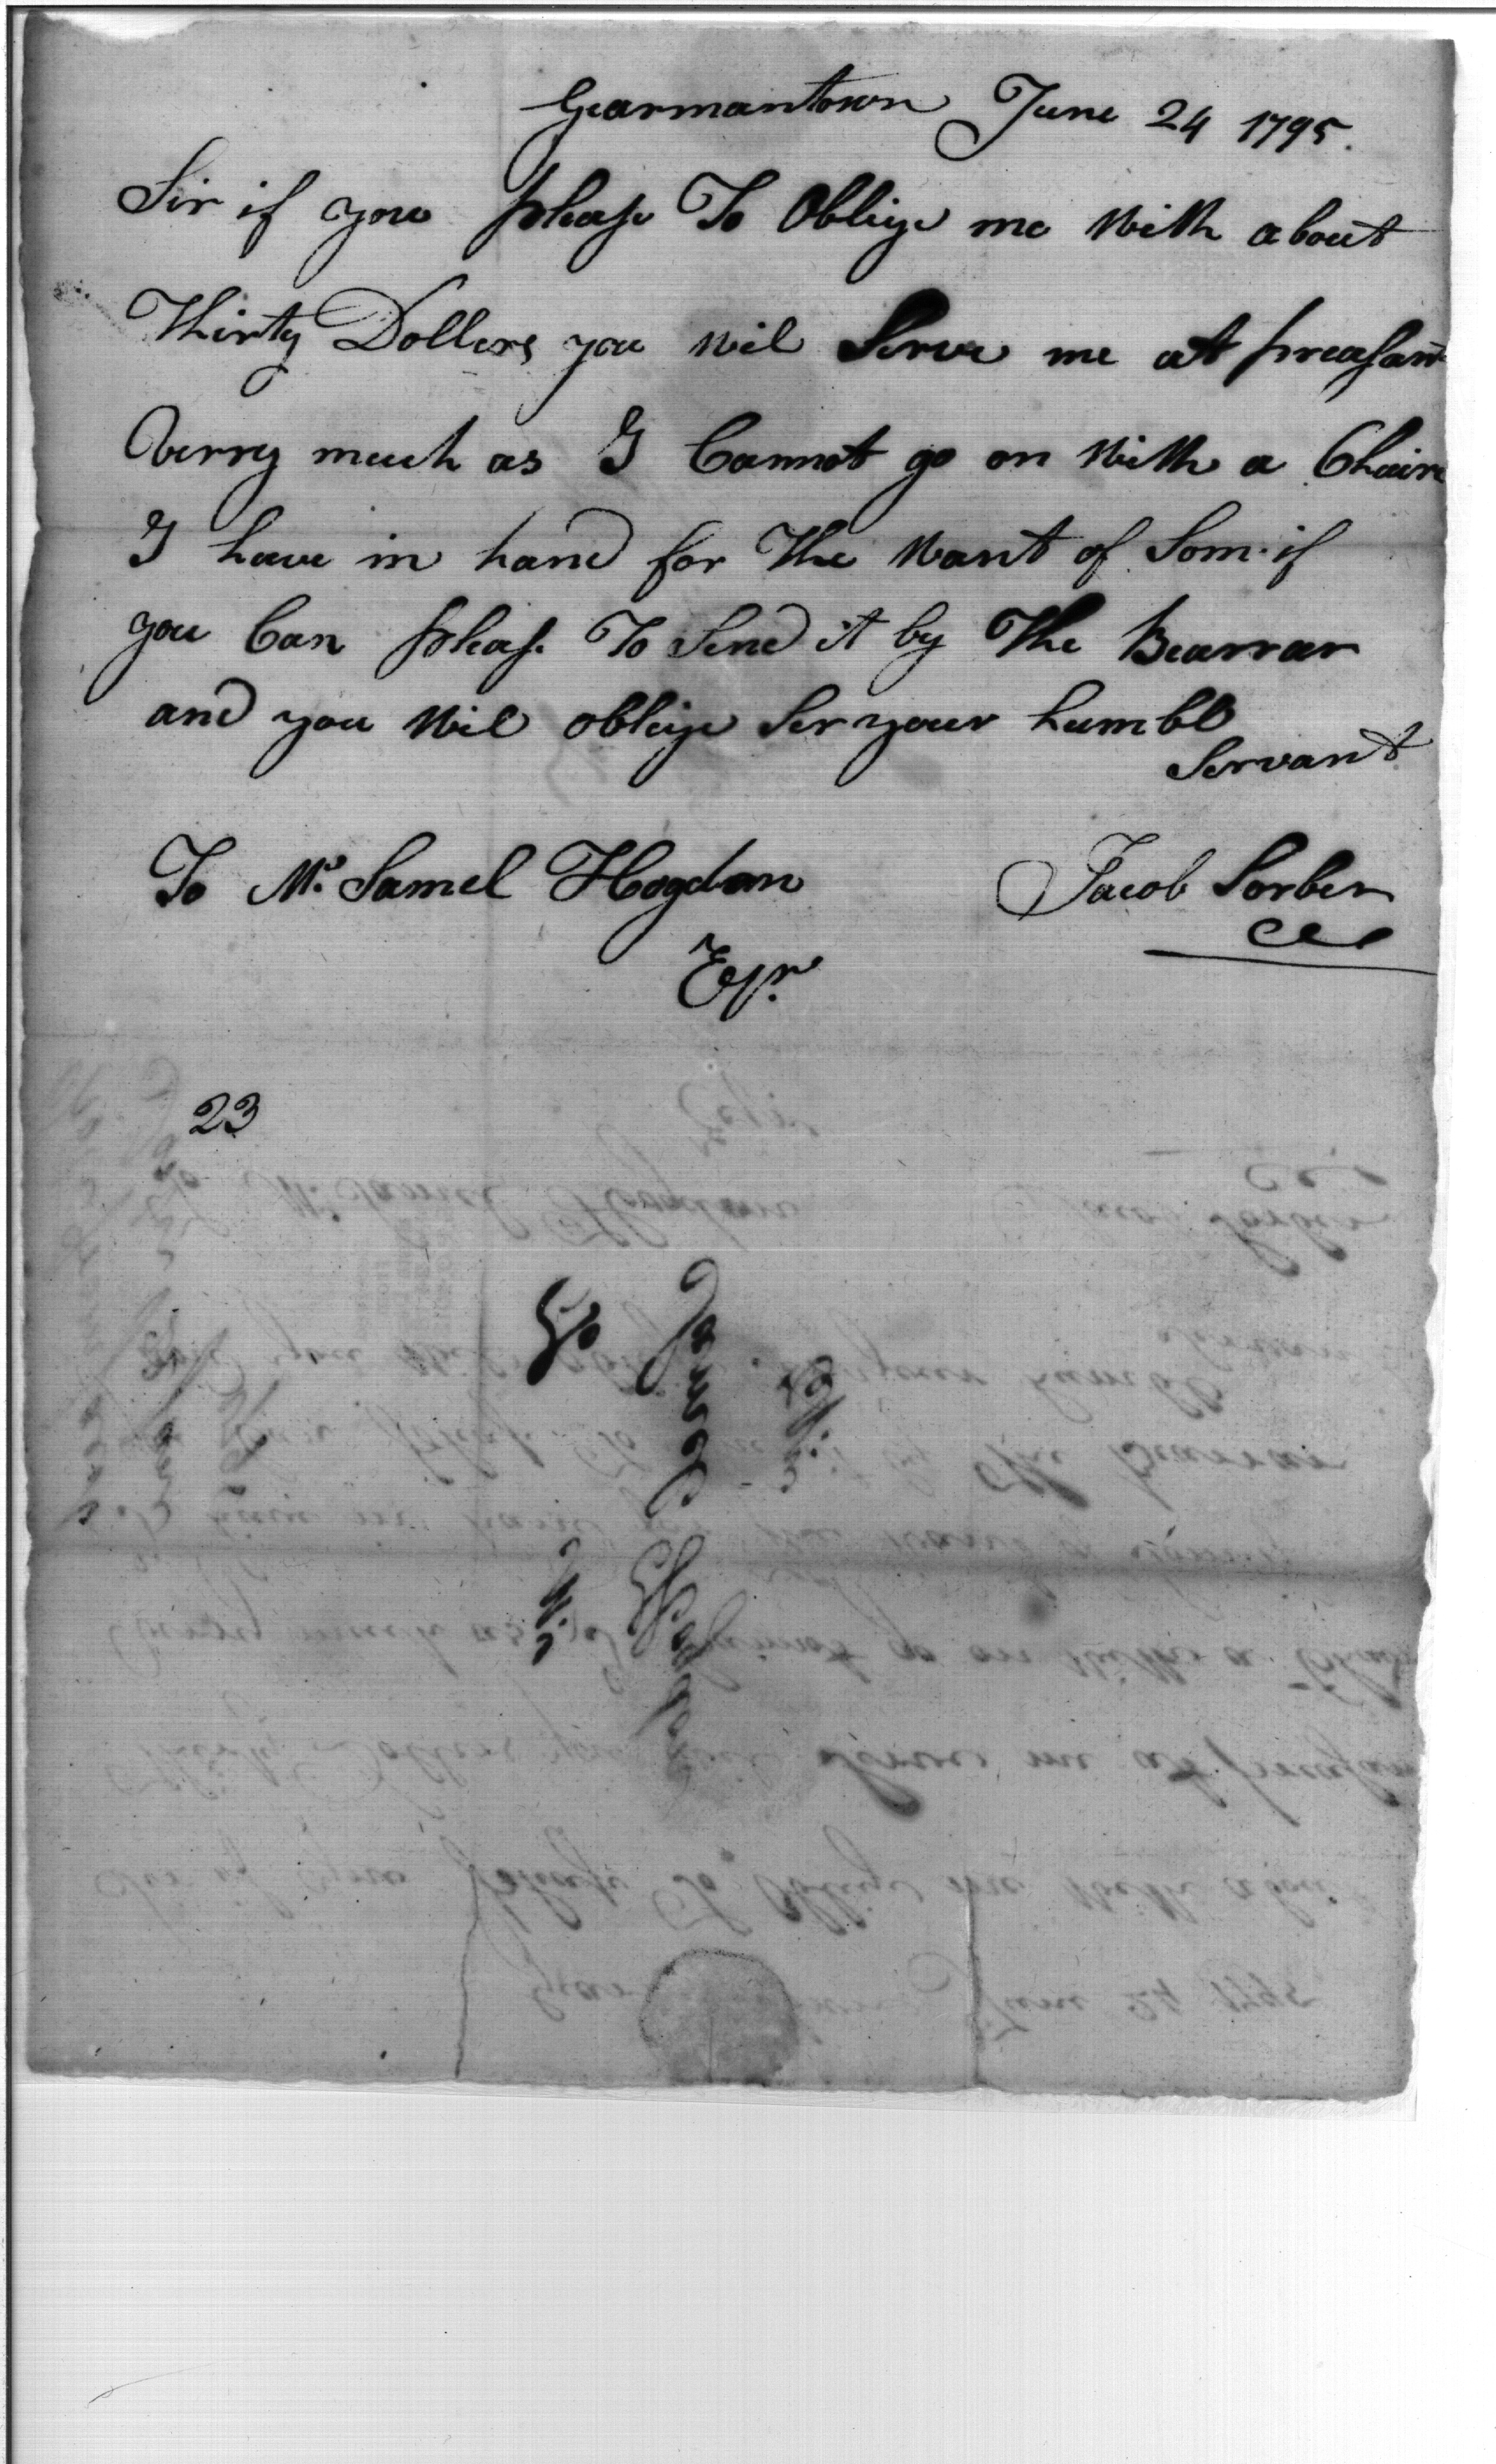 Gearmantown June 24 1795.
Sir if you please To Oblige me With about
Thirty Dollers you wil Serve me at preasant
Verry much as I Cannot go on With a Chaire
I have in hand for The Want of Som. if
you Can please To Send it by The Bearrar
and you Wil oblige Ser your humbl
Servant
To Mr. Samel Hogdan Jacob Sorber
Esqr.
23
To Mr.
Samel Hogdan
Esqr.